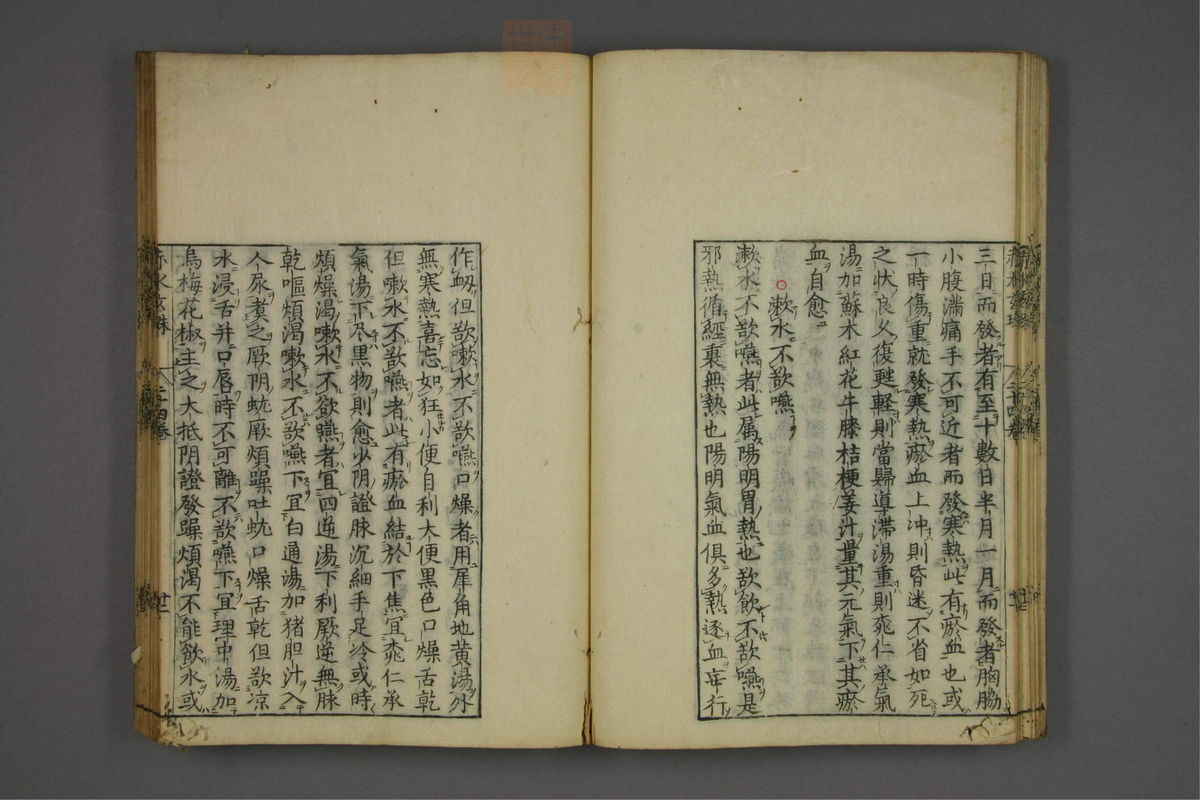 三日而發者有至十數日半月一月而發者胸脇
小腹滿痛手不可近者而發寒熱此有瘀血也或
一時傷重就發寒熱瘀血上冲則昏迷不省如死
之狀良久復甦輕則當歸導滯湯重則桃仁承氣
湯加蘇木紅花牛膝桔梗姜汁量其元氣下其瘀
血自愈
漱水不欲嚥
漱水不欲嚥者此属陽明胃熱也欲飲不欲嚥是
邪熱循經裏無熱也陽明氣血俱多熱逐血妄行
作衂但欲嗽水不欲嚥口燥者用犀角地黄湯外
無寒熱喜忘如狂小便自利大便黒色口燥舌乾
但嗽水不欲嚥者此有瘀血結於下焦宜桃仁承
氣湯下尽黒物則愈少阴證脉沉細手足冷或時
煩燥渴嗽水不欲嚥者宜四逆湯下利厥逆無脉
乾嘔煩渴嗽水不欲嚥下宜白通湯加猪胆汁入
人尿煑之厥阴蚘厥煩躁吐蚘口燥舌乾但欲凉
水浸舌并口唇時不可離不欲嚥下宜理中湯加
烏梅花椒主之大抵阴證發躁煩渴不能飲水或
赤水玄珠
二十四卷
廿二